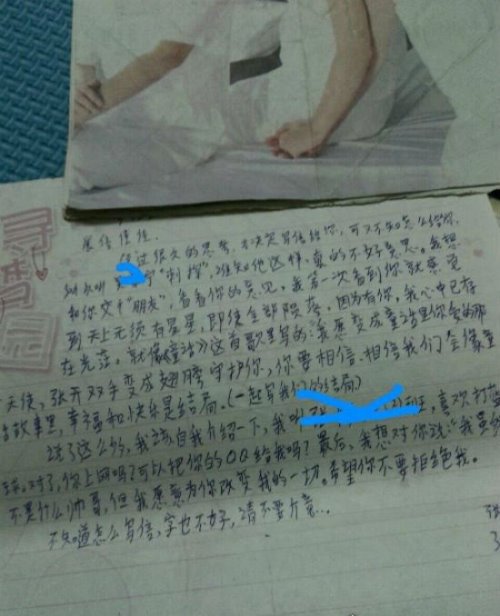 展信佳
经过很久的思考,才决定写信给你,可又不知怎么给你,
"利物",谁知他这样,真的不好意思。我想
和你交个"朋友",看看你的意见。我第一次看到你就感觉
到天上无须有星星,即使全部陨落,因为有你,我心中已存
在光芒,就像《童话》这首歌里写的:我愿变成童话里你爱的那
天使,张开双手变成翅膀守护你,你要相信,相信我们会像童
话故事里,幸福和快乐是结局。(一起写我们的结局)
说了这么多,我该自我介绍一下,我叫 班,喜欢打篮
球。对了,你上网吗?可以把你的QQ给我吗?最后,我想对你说:"我虽然
不是什么帅哥,但我愿意为你改变我的一切。希望你不要拒绝我。
不知道怎么写信,字也不好,请不要介意..
寻梦园